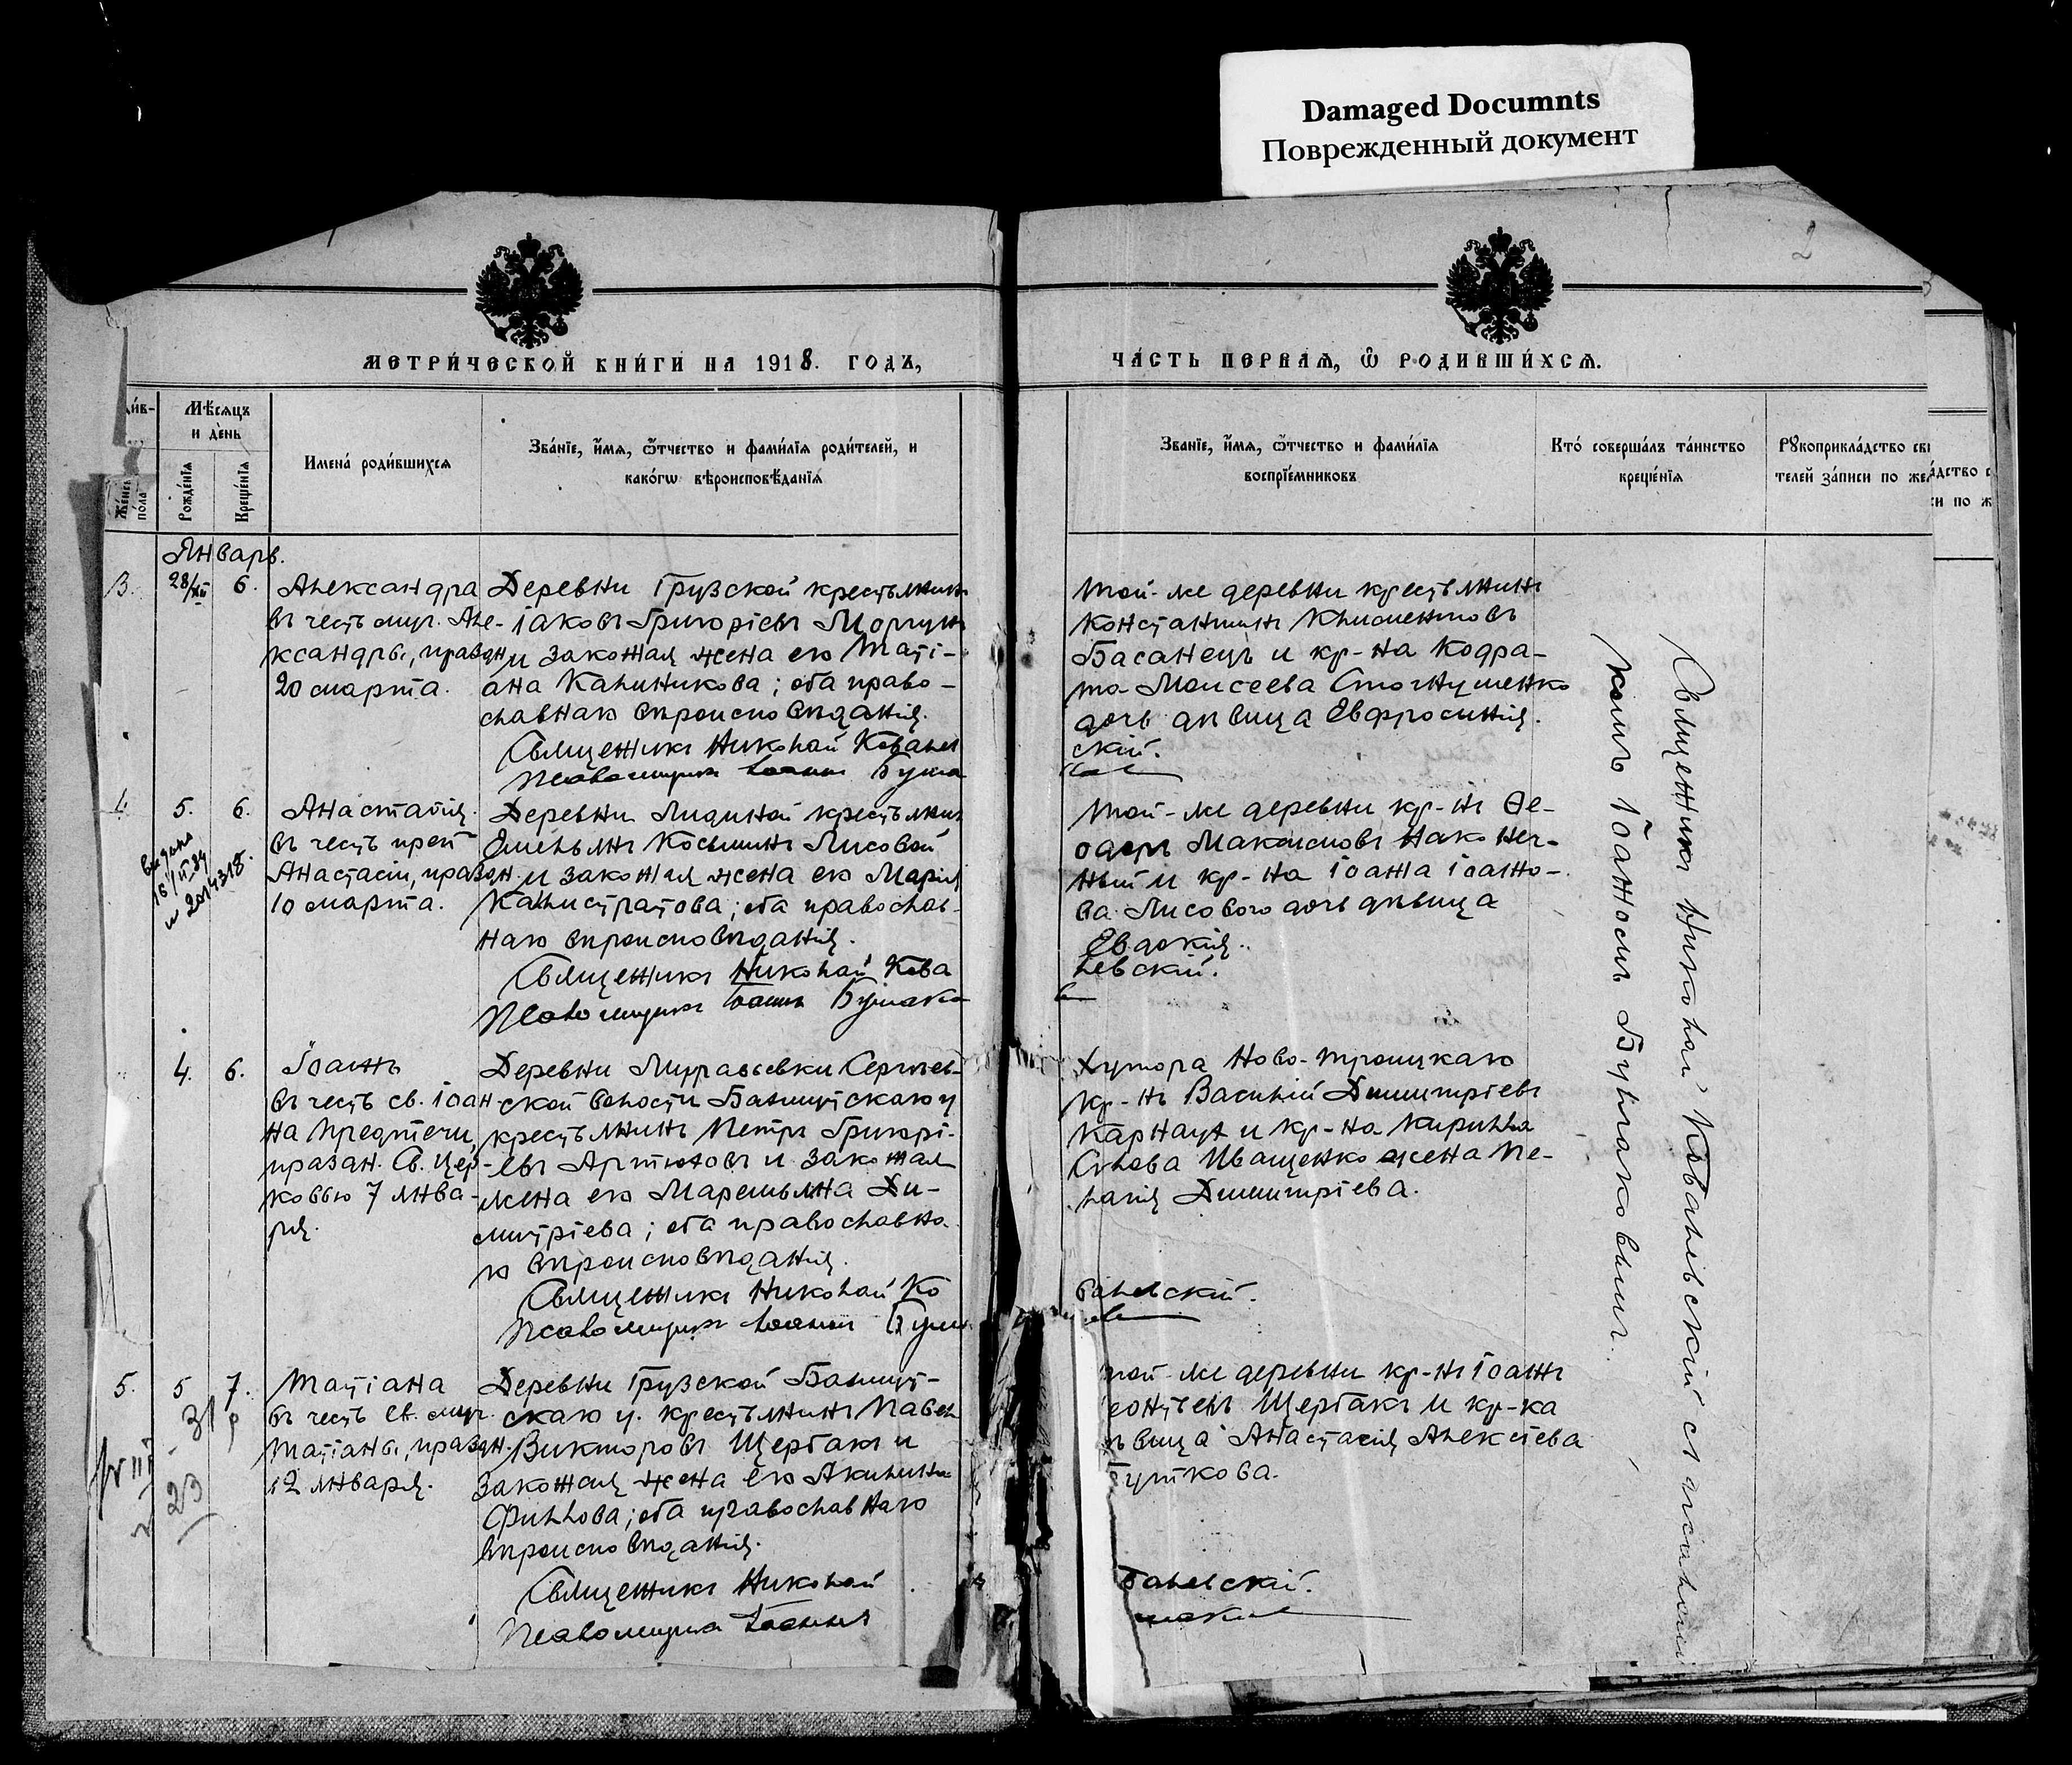 Damaged Documnts
Поврежденный документ
2
метри́ческой кни́ги на 1918. годъ,
ча́сть пе́рвая, ѿ роди́вшихся.
Мѣ́сяцъ
и де́нь
Рожде́нїя
Креще́нїя
Имена́ роди́вшихся
Зва́нїе, и́мя, ѻ҆́тчество и фами́лїя роди́телей, и
како́гѡ вѣроисповѣ́данїя
Зва́нїе, и́мя, ѻ҆́тчество и фами́лїя
воспрїе́мниковъ
Кто́ соверша́лъ та́инство
креще́нїя
Рꙋкоприкла́дство сви
телей за́писи по жел
Январь.
3. 28/XII 6.
Александра
въ честь муч. Але-
ксандры, праздн.
20 марта.
Деревни Грузской крестьянинъ
Іаковъ Григорiевъ Моргунъ
и законная жена его Татi-
ана Калиникова; оба право-
славнаго вѣроисповѣданiя.
Священникъ Николай Ковалев
Псаломщикъ Іоаннъ Булга
той-же деревни крестьянинъ
Константинъ Климентовъ
Басанецъ и кр-на Кодра-
та Моисеева Стогнушенко
дочь дѣвица Евфросинiя.
скiй.
4. 5. 6.
выдана
Анастасiя.
въ честь преп
Анастасiи, праздн.
10 марта.
Деревни Лидиной крестьянинъ
Емельянъ Косьминъ Лисовой
и законная жена его Марiя
Калистратова; оба православ-
наго вѣроисповѣданiя.
Священникъ Николай Кова
Псаломщикъ Іоаннъ Булгако
той-же деревни кр-нъ Ѳе-
одоръ Максимовъ Наконеч-
ный и кр-на Іоанна Іоанно-
ва Лисового дочь дѣвица
Евдокiя.
левскiй.
4. 6.
Іоаннъ
въ честь св. Іоан-
на Предтечи,
праздн. Св. Цер-
ковью 7 янва-
ря.
Деревни Муравьевки Сергiев-
ской волости Бахмутскаго у
крестьянинъ Петръ Григорi-
евъ Артюховъ и законная
жена его Маремьяна Ди-
митрiева; оба православна-
го вѣроисповѣданiя.
Священникъ Николай Ко
Псаломщикъ Іоаннъ Булг
Хутора Ново-Троицкаго
кр-нъ Василiй Димитрiевъ
Карнаух и кр-на Кирилла
Силова Иващенко жена Пе-
лагiя Димитрiева.
валевскiй.
5. 5 7.
Татiана
въ честь св. муч.
Татiаны, праздн.
12 января.
31
23
Деревни Грузской Бахмут-
скаго у. крестьянинъ Павелъ
Викторовъ Щербакъ и
законная жена его Акилина
Филлова; оба православнаго
вѣроисповѣданiя.
Священникъ Николай
Псаломщикъ Іоаннъ
той-же деревни кр-нъ Іоаннъ
еонтьевъ Щербакъ и кр-ка
ѣвица Анастасiя Алексѣева
Буткова.
валевскiй.
Священникъ Николай Ковалевскiй съ псаломщи
комъ Іоанномъ Булгаковымъ.